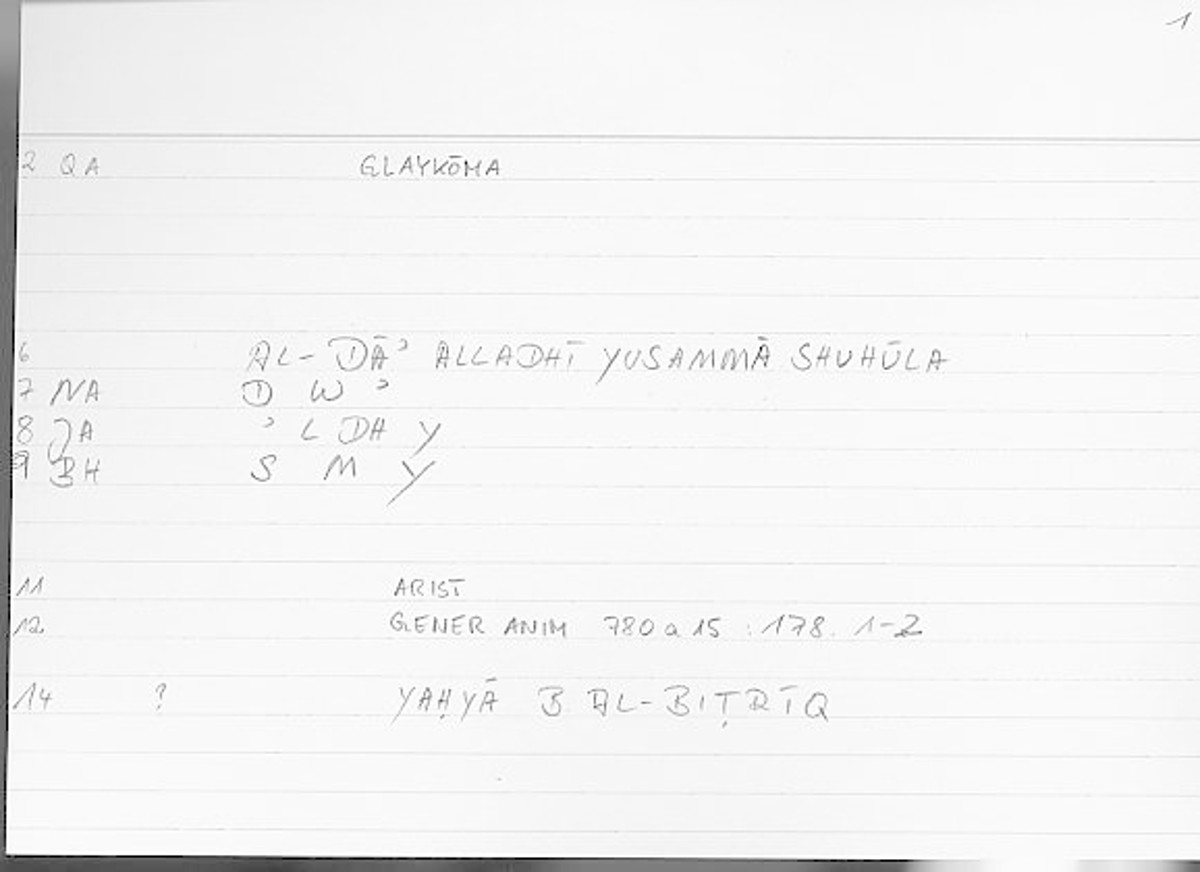 1
2 QA GLAYKŌMA
6 AL-DĀʾ ALLADHĪ YUSAMMĀ SHUHŪLA
7 NA D W ʾ
8 JA ʾ L DH Y
9 BH S M Y
11 ARIST
12 GENER ANIM 780 a 15 : 178. 1-2
14 ? YAḤYĀ B AL-BIṬRĪQ